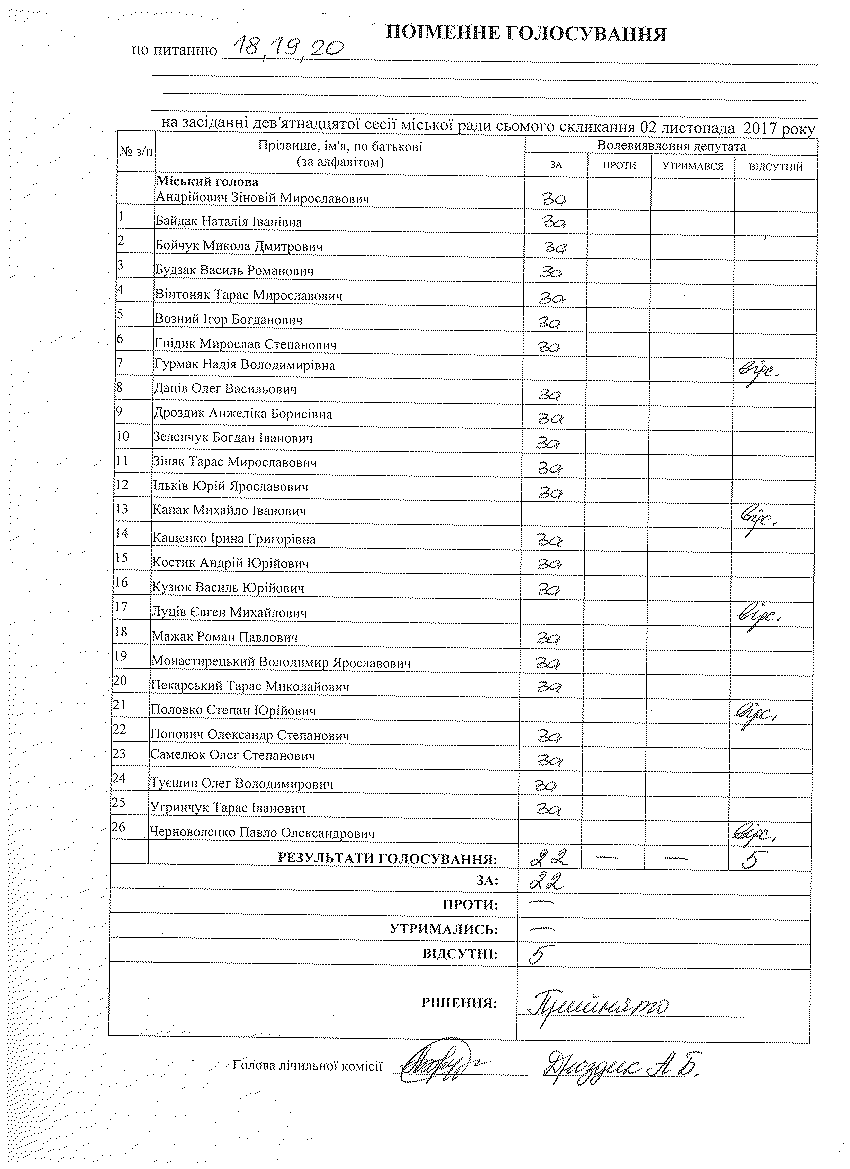 ПОІМЕННЕ ГОЛОСУВАННЯ
по питанню 18,19,20
на засіданні дев'ятнадцятої сесії міської ради сьомого скликання 02 листопада 2017 року
№ з/п Прізвище, ім'я, по батькові (за алфавітом) Волевиявлення депутата
ЗА ПРОТИ УТРИМАВСЯ ВІДСУТНІЙ
Міський голова
Андрійович Зіновій Мирославович За
1 Байдак Наталія Іванівна За
2 Бойчук Микола Дмитрович За
3 Будзак Василь Романович За
4 Вінтоняк Тарас Мирославович За
5 Возний Ігор Богданович За
6 Гнідик Мирослав Степанович За
7 Гурмак Надія Володимирівна відс.
8 Даців Олег Васильович За
9 Дроздик Анжеліка Борисівна За
10 Зеленчук Богдан Іванович За
11 Зіняк Тарас Мирославович За
12 Ільків Юрій Ярославович За
13 Капак Михайло Іванович відс.
14 Кащенко Ірина Григорівна За
15 Костик Андрій Юрійович За
16 Кузюк Василь Юрійович За
17 Луців Євген Михайлович відс.
18 Мажак Роман Павлович За
19 Монастирецький Володимир Ярославович За
20 Пекарський Тарас Миколайович За
21 Половко Степан Юрійович відс.
22 Попович Олександр Степанович За
23 Самелюк Олег Степанович За
24 Туєшин Олег Володимирович За
25 Угринчук Тарас Іванович За
26 Черноволенко Павло Олександрович відс.
РЕЗУЛЬТАТИ ГОЛОСУВАННЯ: 22 — — 5
ЗА: 22
ПРОТИ: —
УТРИМАЛИСЬ: —
ВІДСУТНІ: 5
РІШЕННЯ: Прийнято
Голова лічильної комісії Дроздик А Б.